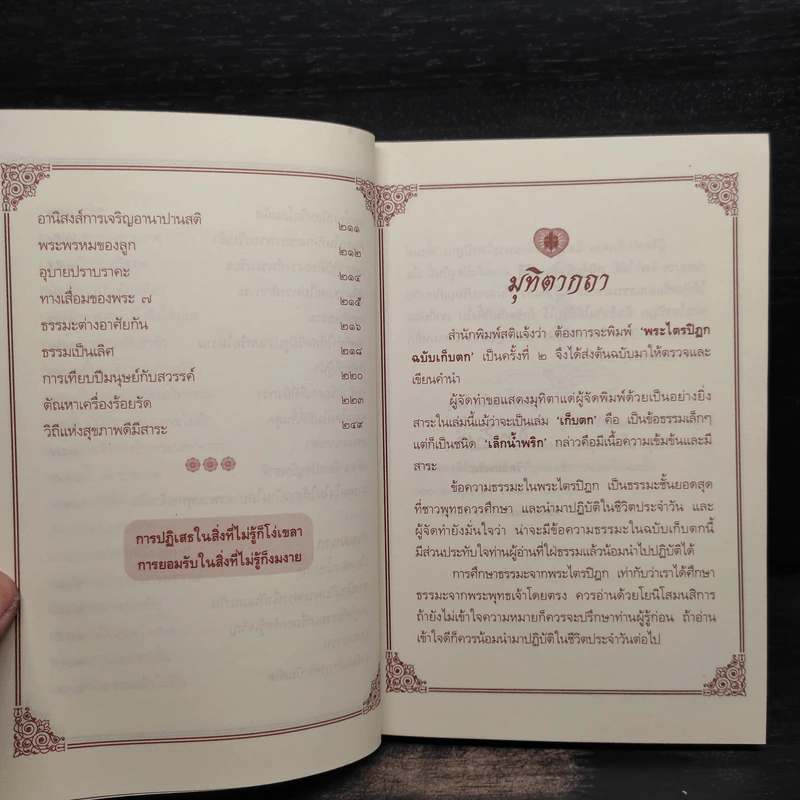 อานิสงส์การเจริญอานาปานสติ ๒๑๑
พระพรหมของลูก ๒๑๒
อุบายปราบราคะ ๒๑๔
ทางเสื่อมของพระ ๗ ๒๑๕
ธรรมะต่างอาศัยกัน ๒๑๖
ธรรมเป็นเลิศ ๒๑๘
การเทียบปีมนุษย์กับสวรรค์ ๒๒๐
ตัณหาเครื่องร้อยรัด ๒๒๓
วิถีแห่งสุขภาพดีมีสาระ ๒๔๙
การปฏิเสธในสิ่งที่ไม่รู้ก็โง่เขลา
การยอมรับในสิ่งที่ไม่รู้ก็งมงาย
มุทิตากถา
สำนักพิมพ์สติแจ้งว่า ต้องการจะพิมพ์ 'พระไตรปิฎก
ฉบับเก็บตก' เป็นครั้งที่ ๒ จึงได้ส่งต้นฉบับมาให้ตรวจและ
เขียนคำนำ
ผู้จัดทำขอแสดงมุทิตาแด่ผู้จัดพิมพ์ด้วยเป็นอย่างยิ่ง
สาระในเล่มนี้แม้ว่าจะเป็นเล่ม 'เก็บตก' คือ เป็นข้อธรรมเล็กๆ
แต่ก็เป็นชนิด 'เล็กน้ำพริก' กล่าวคือมีเนื้อความเข้มข้นและมี
สาระ
ข้อความธรรมะในพระไตรปิฎก เป็นธรรมะชั้นยอดสุด
ที่ชาวพุทธควรศึกษา และนำมาปฏิบัติในชีวิตประจำวัน และ
ผู้จัดทำยังมั่นใจว่า น่าจะมีข้อความธรรมะในฉบับเก็บตกนี้
มีส่วนประทับใจท่านผู้อ่านที่ใฝ่ธรรมแล้วน้อมนำไปปฏิบัติได้
การศึกษาธรรมะจากพระไตรปิฎก เท่ากับว่าเราได้ศึกษา
ธรรมะจากพระพุทธเจ้าโดยตรง ควรอ่านด้วยโยนิโสมนสิการ
ถ้ายังไม่เข้าใจความหมายก็ควรจะปรึกษาท่านผู้รู้ก่อน ถ้าอ่าน
เข้าใจดีก็ควรน้อมนำมาปฏิบัติในชีวิตประจำวันต่อไป